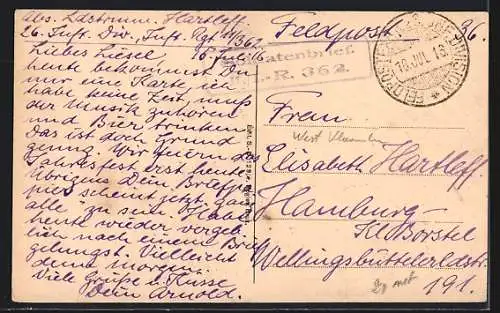 Abs. Ldstrmm. Hartleff.
26. Inf. Div., Inf. Rgt. 11/362.
16. Juli 16
Liebes Liesel
heute bekommst Du
nur eine Karte, ich
habe keine Zeit, muß
der Musik zuhören
und Bier trinken,
das ist doch Grund
genug. Wir feiern das
Jahresfest erst heute
Übrigens Dein Brief
pier scheint jetzt ganz
alle zu sein. Habe
heute wieder vergeb
lich nach einem Brief
gelungst. Vielleicht
denn morgen.
Viele Grüße u. Küsse
Dein Arnold.
Feldpost 36.
Soldatenbrief.
J.-R. 362.
FELDPOST
DIVISION
16 JUL 16
Frau
West Vlaanderen
Elisabeth Hartleff.
Hamburg
Kl Borstel
Wellingsbüttelerldstr.
191.